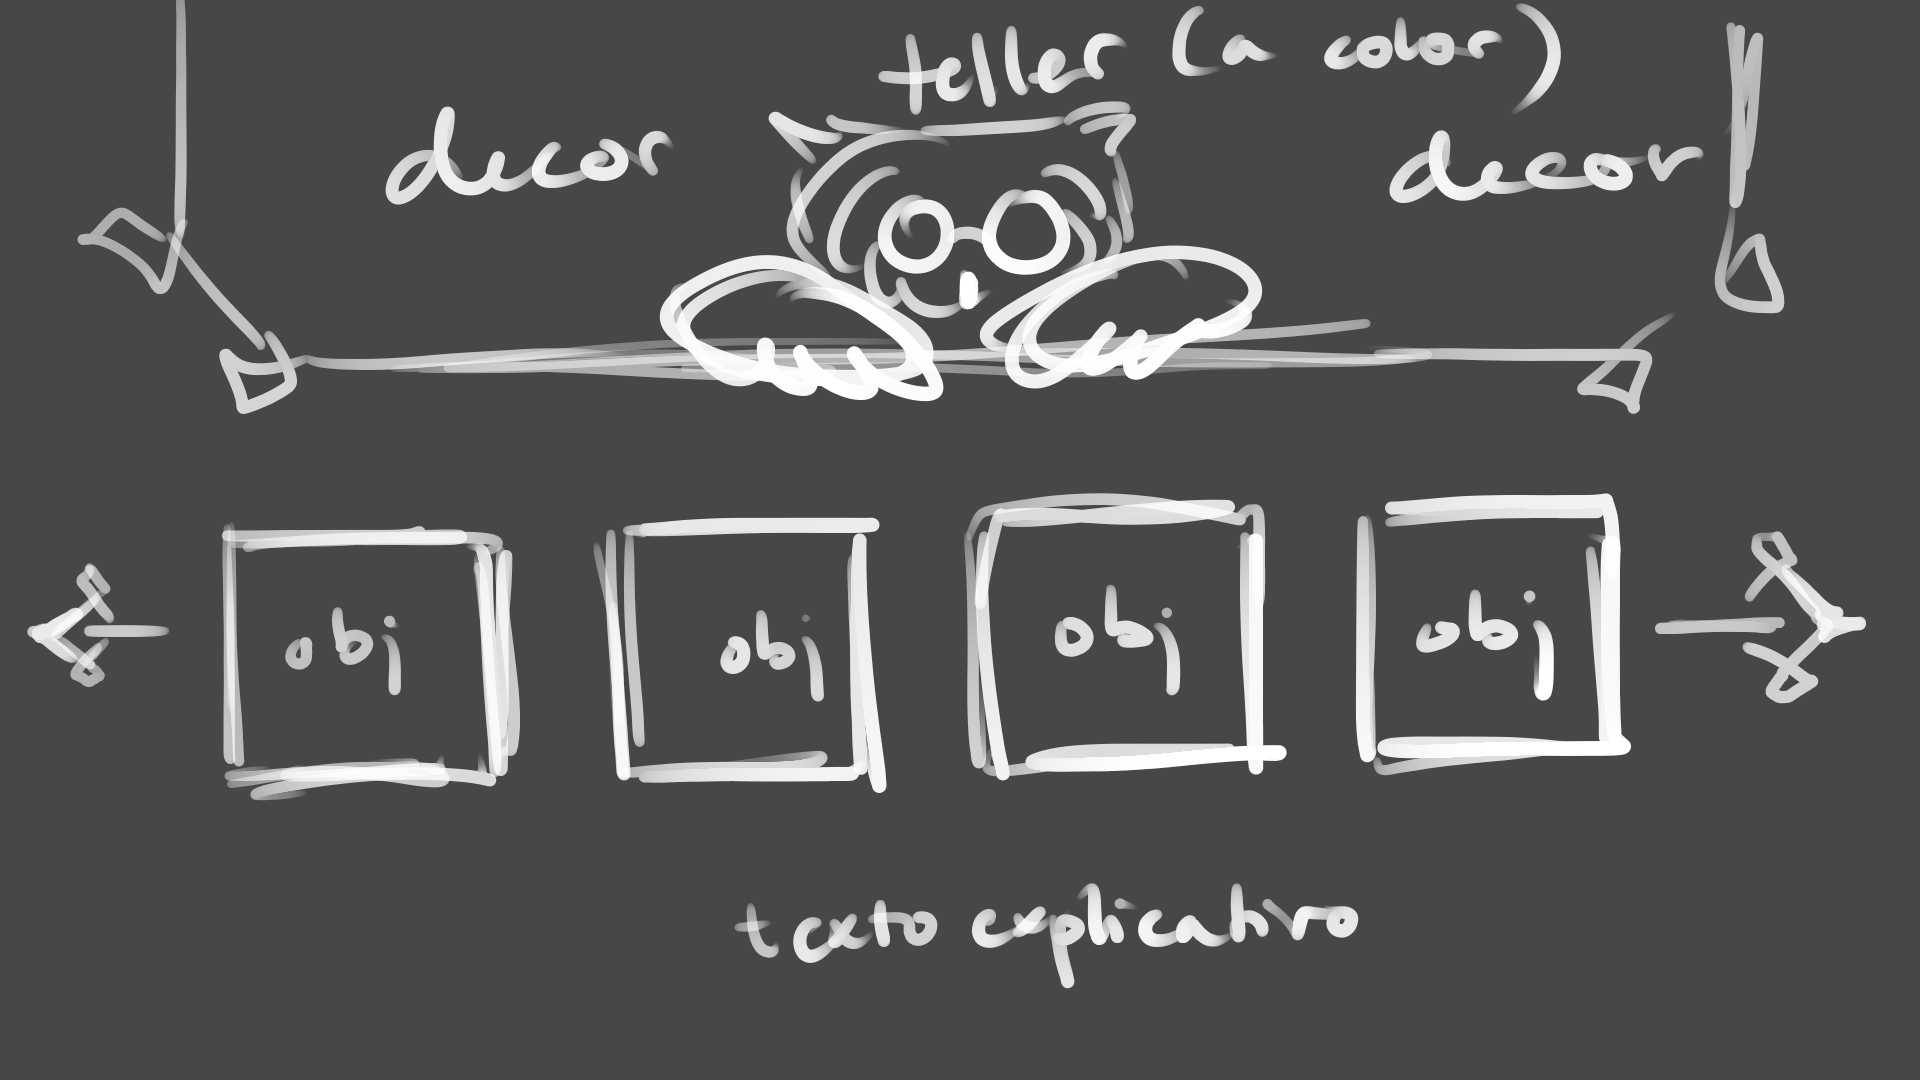 teller (a color)
decor
decor
obj
obj
obj
obj
texto explicativo